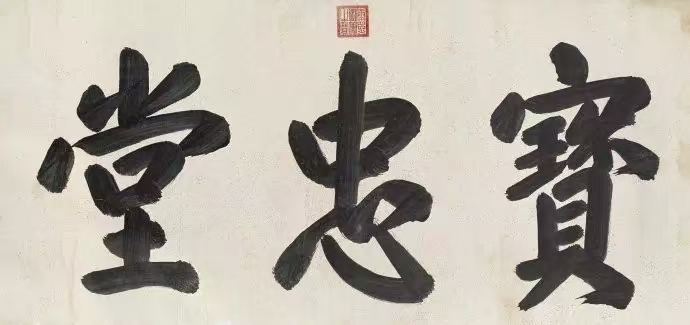 寶忠堂